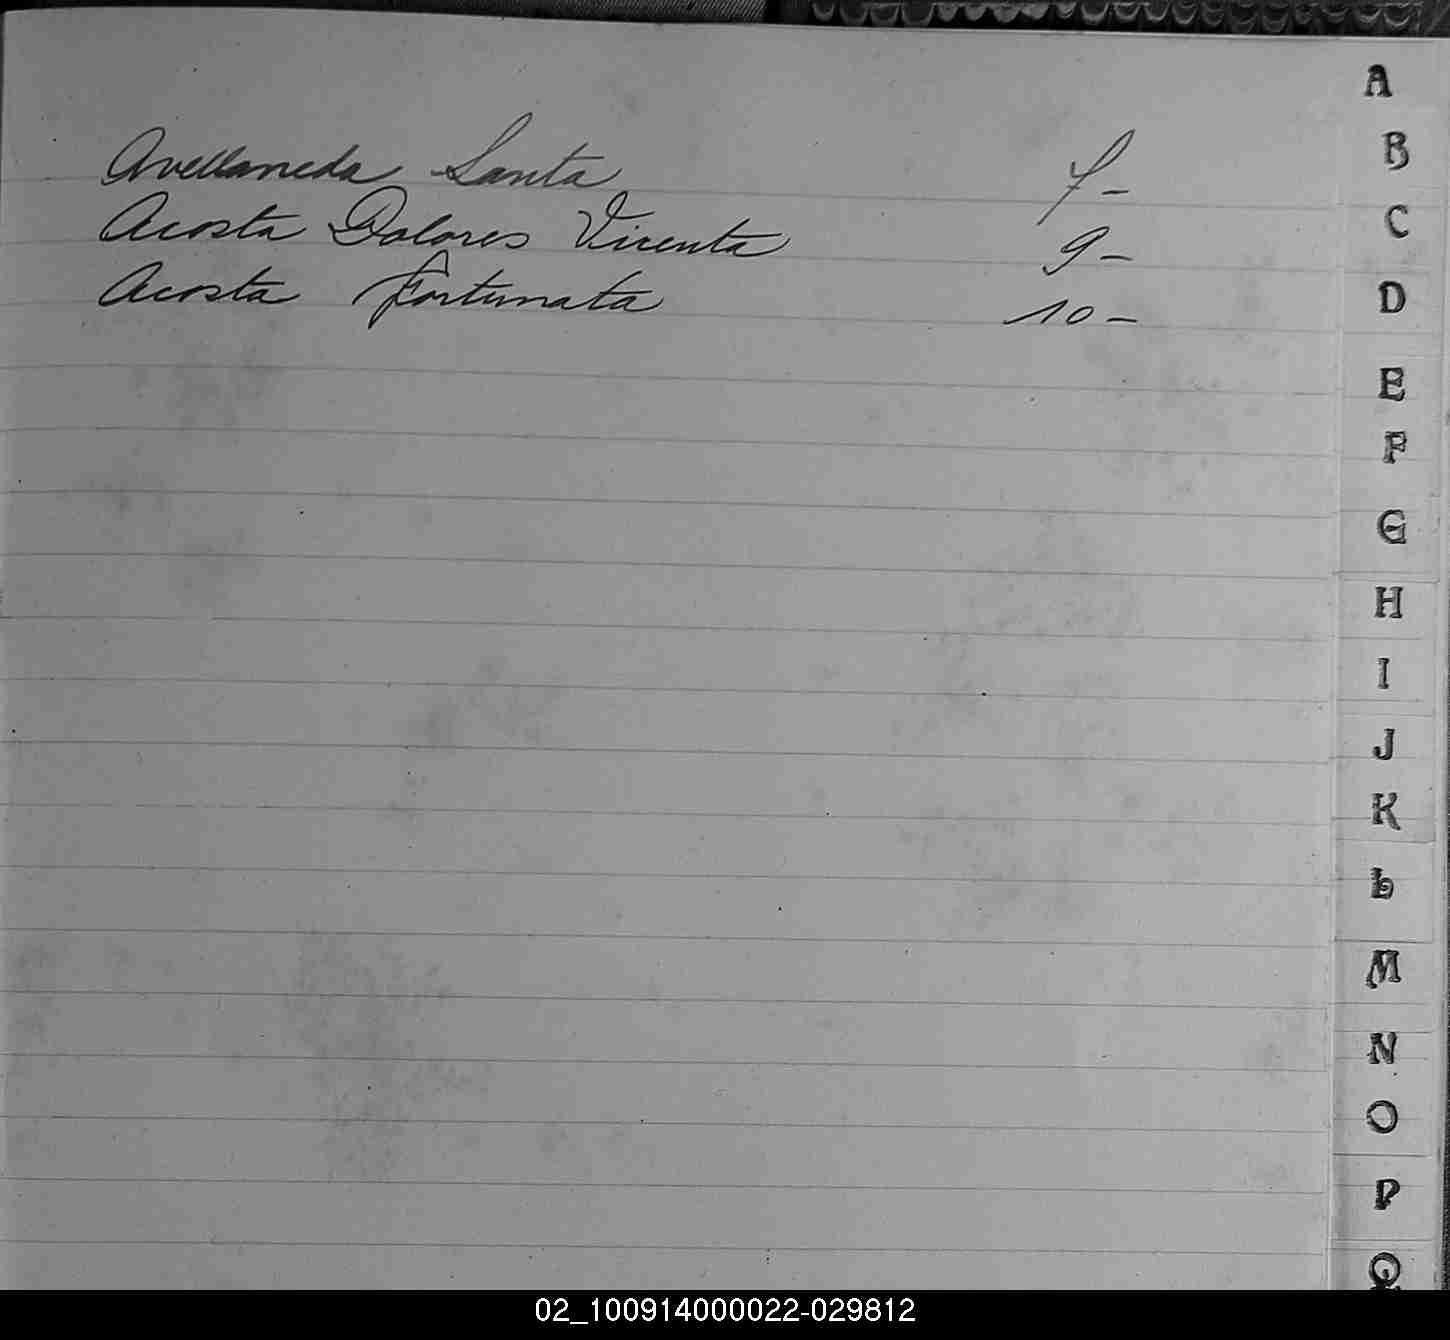 Avellaneda Santa 7-
Acosta Dolores Vicenta 9-
Acosta Fortunata 10-
A
B
C
D
E
F
G
H
I
J
K
L
M
N
O
P
Q
02_100914000022-029812